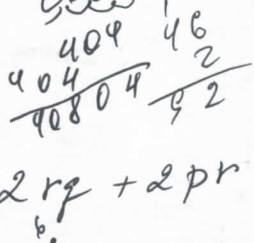 404 46
404 2
40804 92
2rq + 2pr